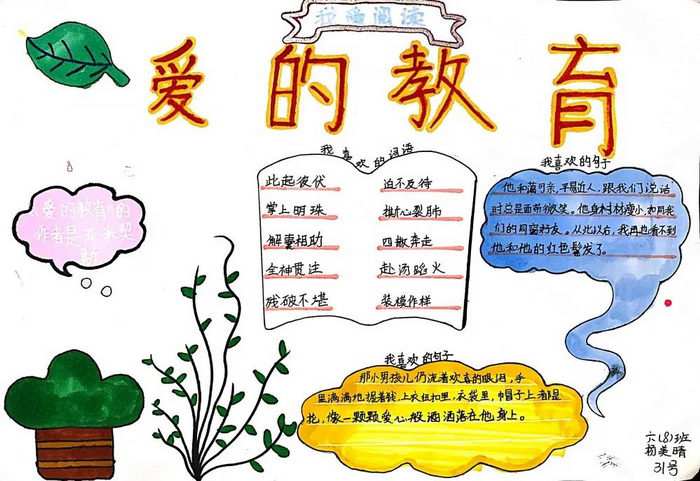 我爱阅读
爱的教育
我喜欢的词语
此起彼伏 迫不及待
掌上明珠 撕心裂肺
解囊相助 四散奔走
全神贯注 赴汤蹈火
残破不堪 装模作样
我喜欢的句子
他和蔼可亲,平易近人,跟我们说话
时总是面带微笑。他身材瘦小,如同我
们的同窗好友。从此以后,我再也看不到
他和他的红色鬈发了。
《爱的教育》的
作者是亚米契
斯
我喜欢的句子
那小男孩儿仍流着欢喜的眼泪,手
里满满地握着钱,上衣纽扣里,衣袋里,帽子上都是
花,像一颗颗爱心般洒落在他身上。
六(8)班
杨美晴
31号